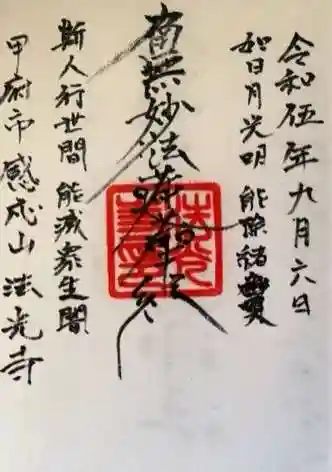 令和伍年九月六日
如日月光明 能除諸幽冥
南無妙法蓮華経
斯人行世間 能滅衆生闇
甲府市 感応山 法光寺